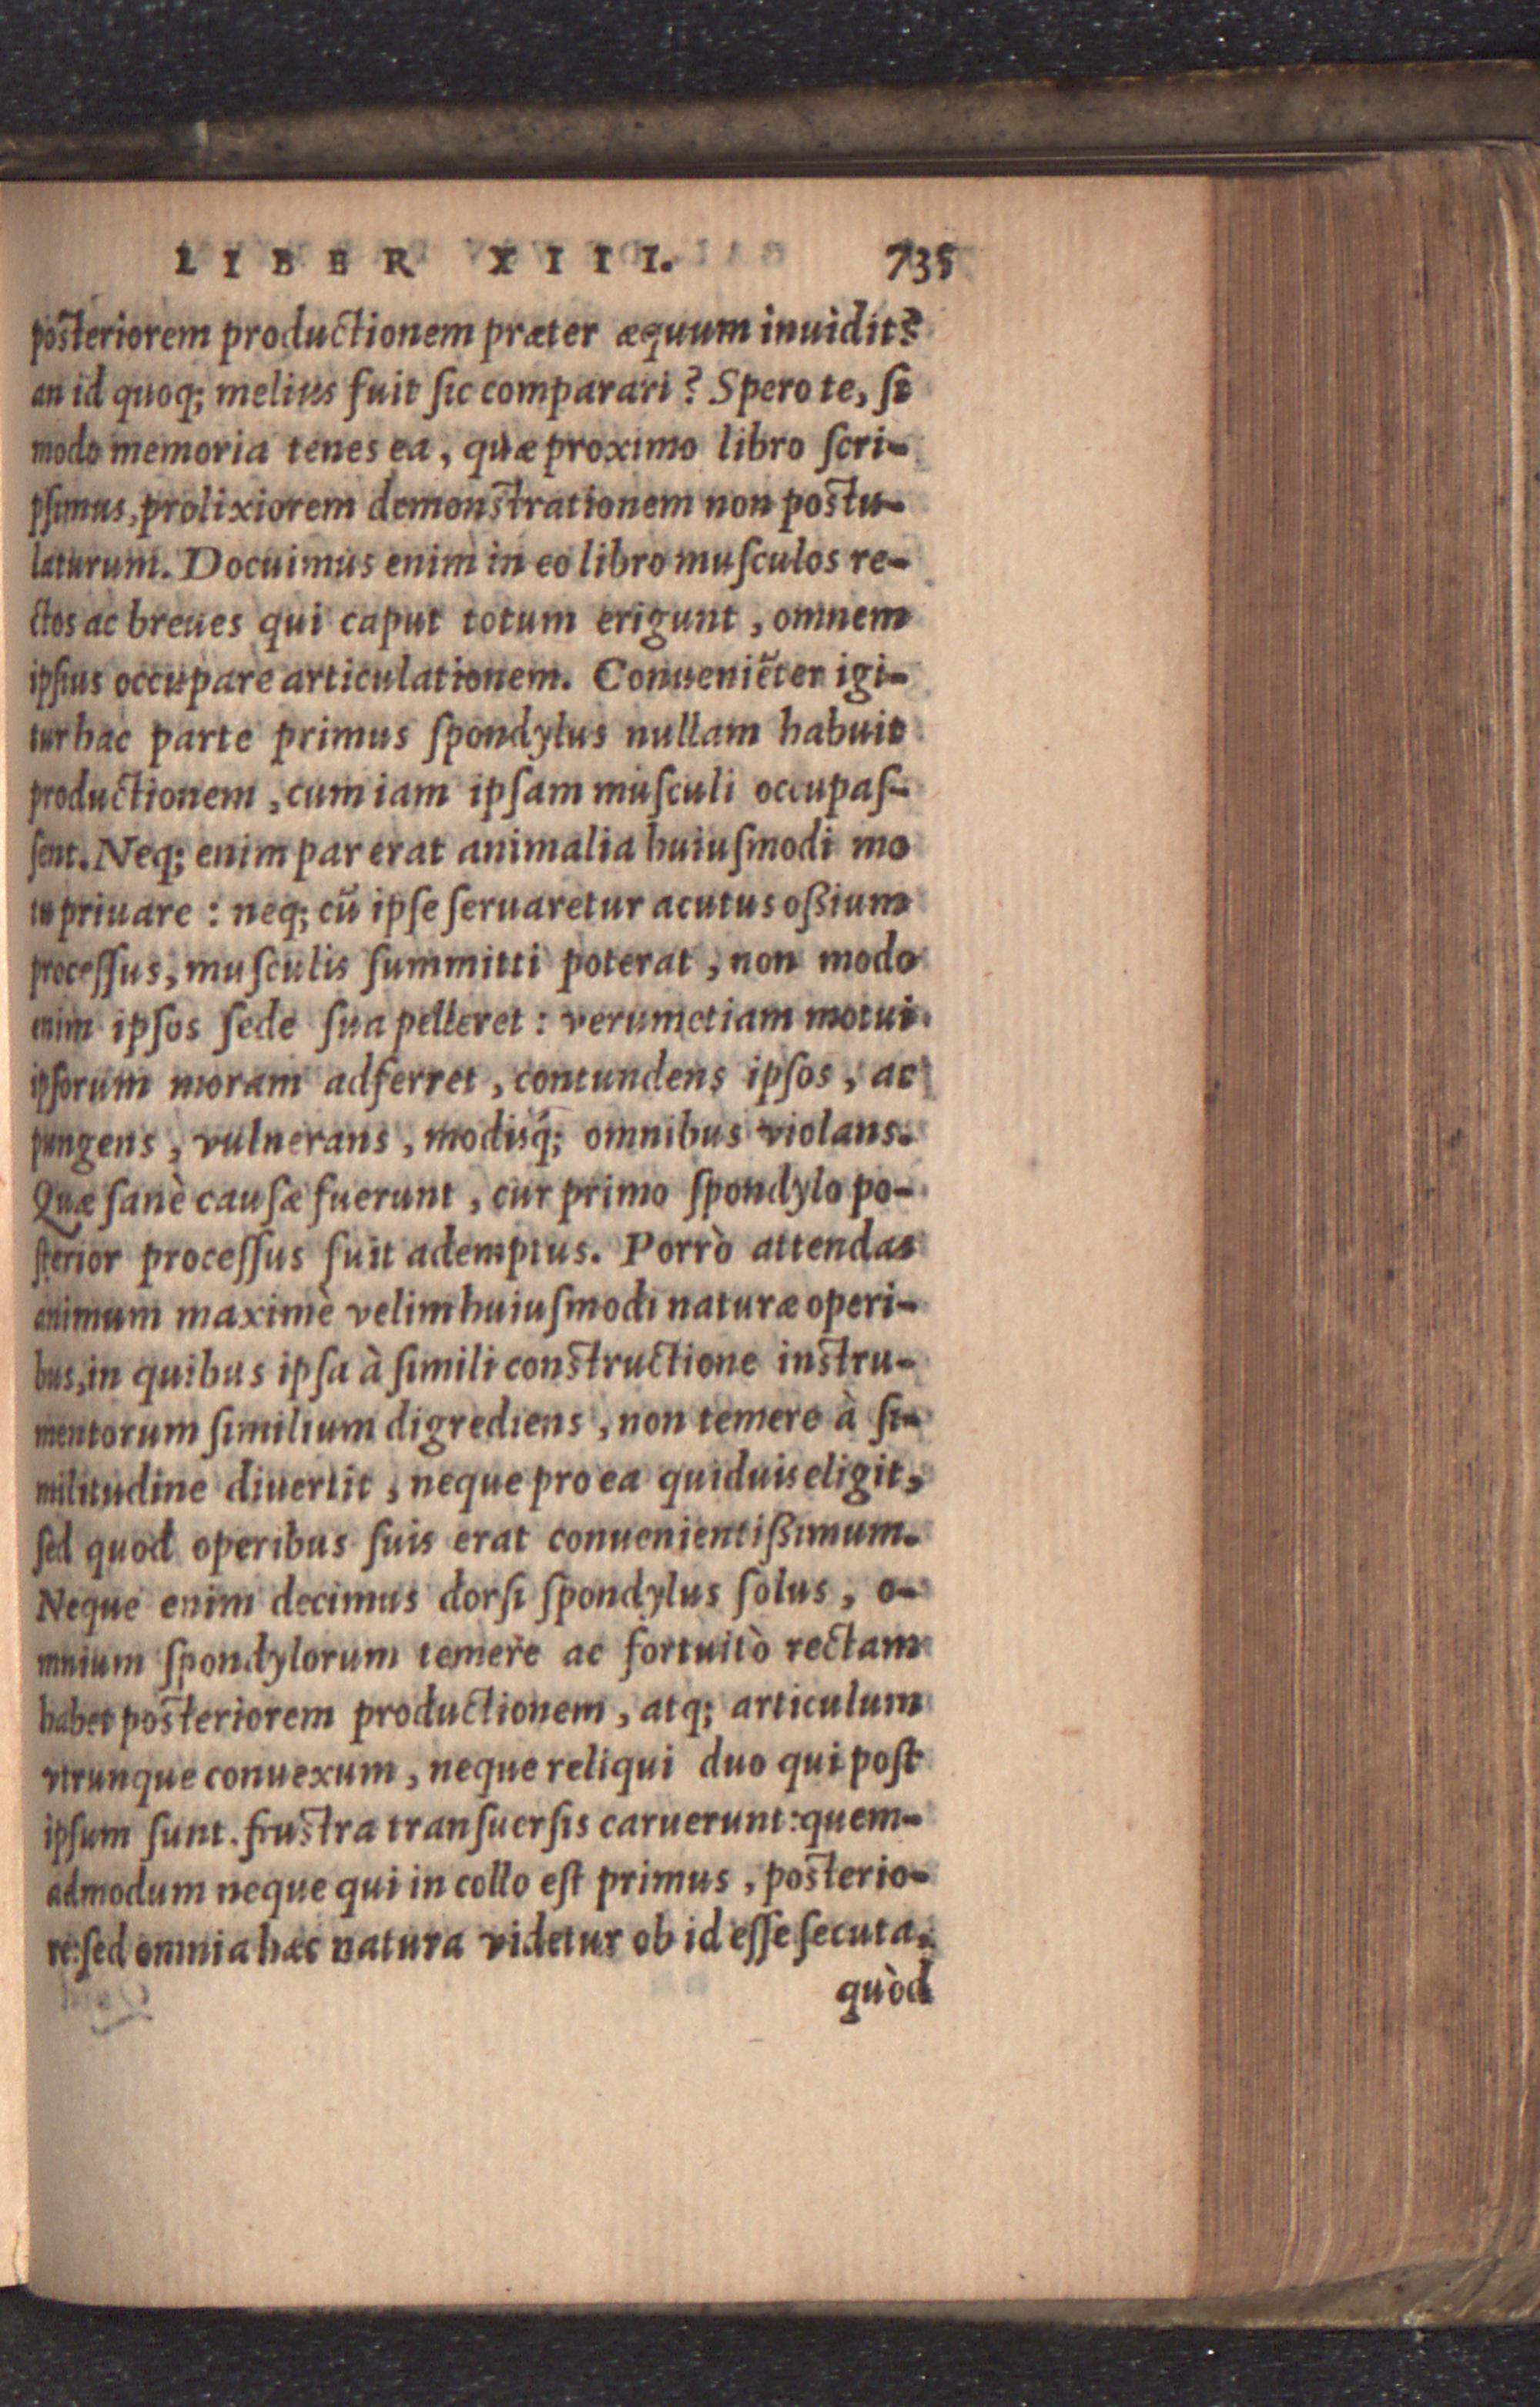 LIBER XIIII. 735
posteriorem productionem præter æquum inuidit?
an id quoq; melius fuit sic comparari? Spero te, si
modo memoria tenes ea, quæ proximo libro scri-
psimus, prolixiorem demonstrationem non postu-
laturum. Docuimus enim in eo libro musculos re-
ctos ac breues qui caput totum erigunt, omnem
ipsius occupare articulationem. Conueniẽter igi-
tur hac parte primus spondylus nullam habuit
productionem, cum iam ipsam musculi occupas-
sent. Neq; enim par erat animalia huiusmodi mo
tu priuare: neq; cũ ipse seruaretur acutus oßium
processus, musculis summitti poterat, non modo
enim ipsos sede sua pelleret: verumetiam motui
ipsorum moram adferret, contundens ipsos, ac
pungens, vulnerans, modisq́; omnibus violans.
Quæ sanè causæ fuerunt, cur primo spondylo po-
sterior processus fuit ademptus. Porrò attendas
animum maximè velim huiusmodi naturæ operi-
bus, in quibus ipsa à simili constructione instru-
mentorum similium digrediens, non temere à si-
militudine diuertit, neque pro ea quiduis eligit,
sed quod operibus suis erat conuenientißimum.
Neque enim decimus dorsi spondylus solus, o-
mnium spondylorum temere ac fortuitò rectam
habet posteriorem productionem, atq; articulum
vtrunque conuexum, neque reliqui duo qui post
ipsum sunt. frustra transuersis caruerunt: quem-
admodum neque qui in collo est primus, posterio-
re: sed omnia hæc natura videtur ob id esse secuta,
quòd